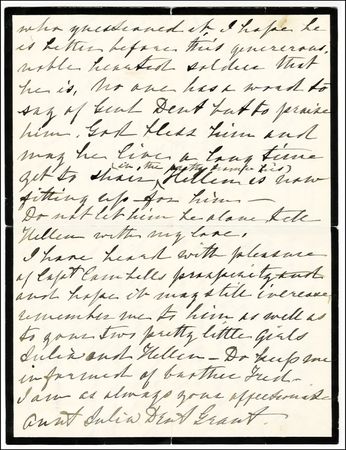 who questioned it I hope he
is better before this generous,
noble hearted soldier that
he is. No one has a word to
say of Genl Dent but to praise
him. God bless him and
may he live a long time
yet to share (in the pretty home his)
Hellen is now
fitting up for him —
Do not let him be alone tell
Hellen with my love.
I have heard with pleasure
of Capt Cambells prosperity and
and hope it may still increase
remember me to him as well as
to your two pretty little girls
Julia and Hellen — Do keep me
informed of brother Fred —
I am as always your affectionate
Aunt Julia Dent Grant.